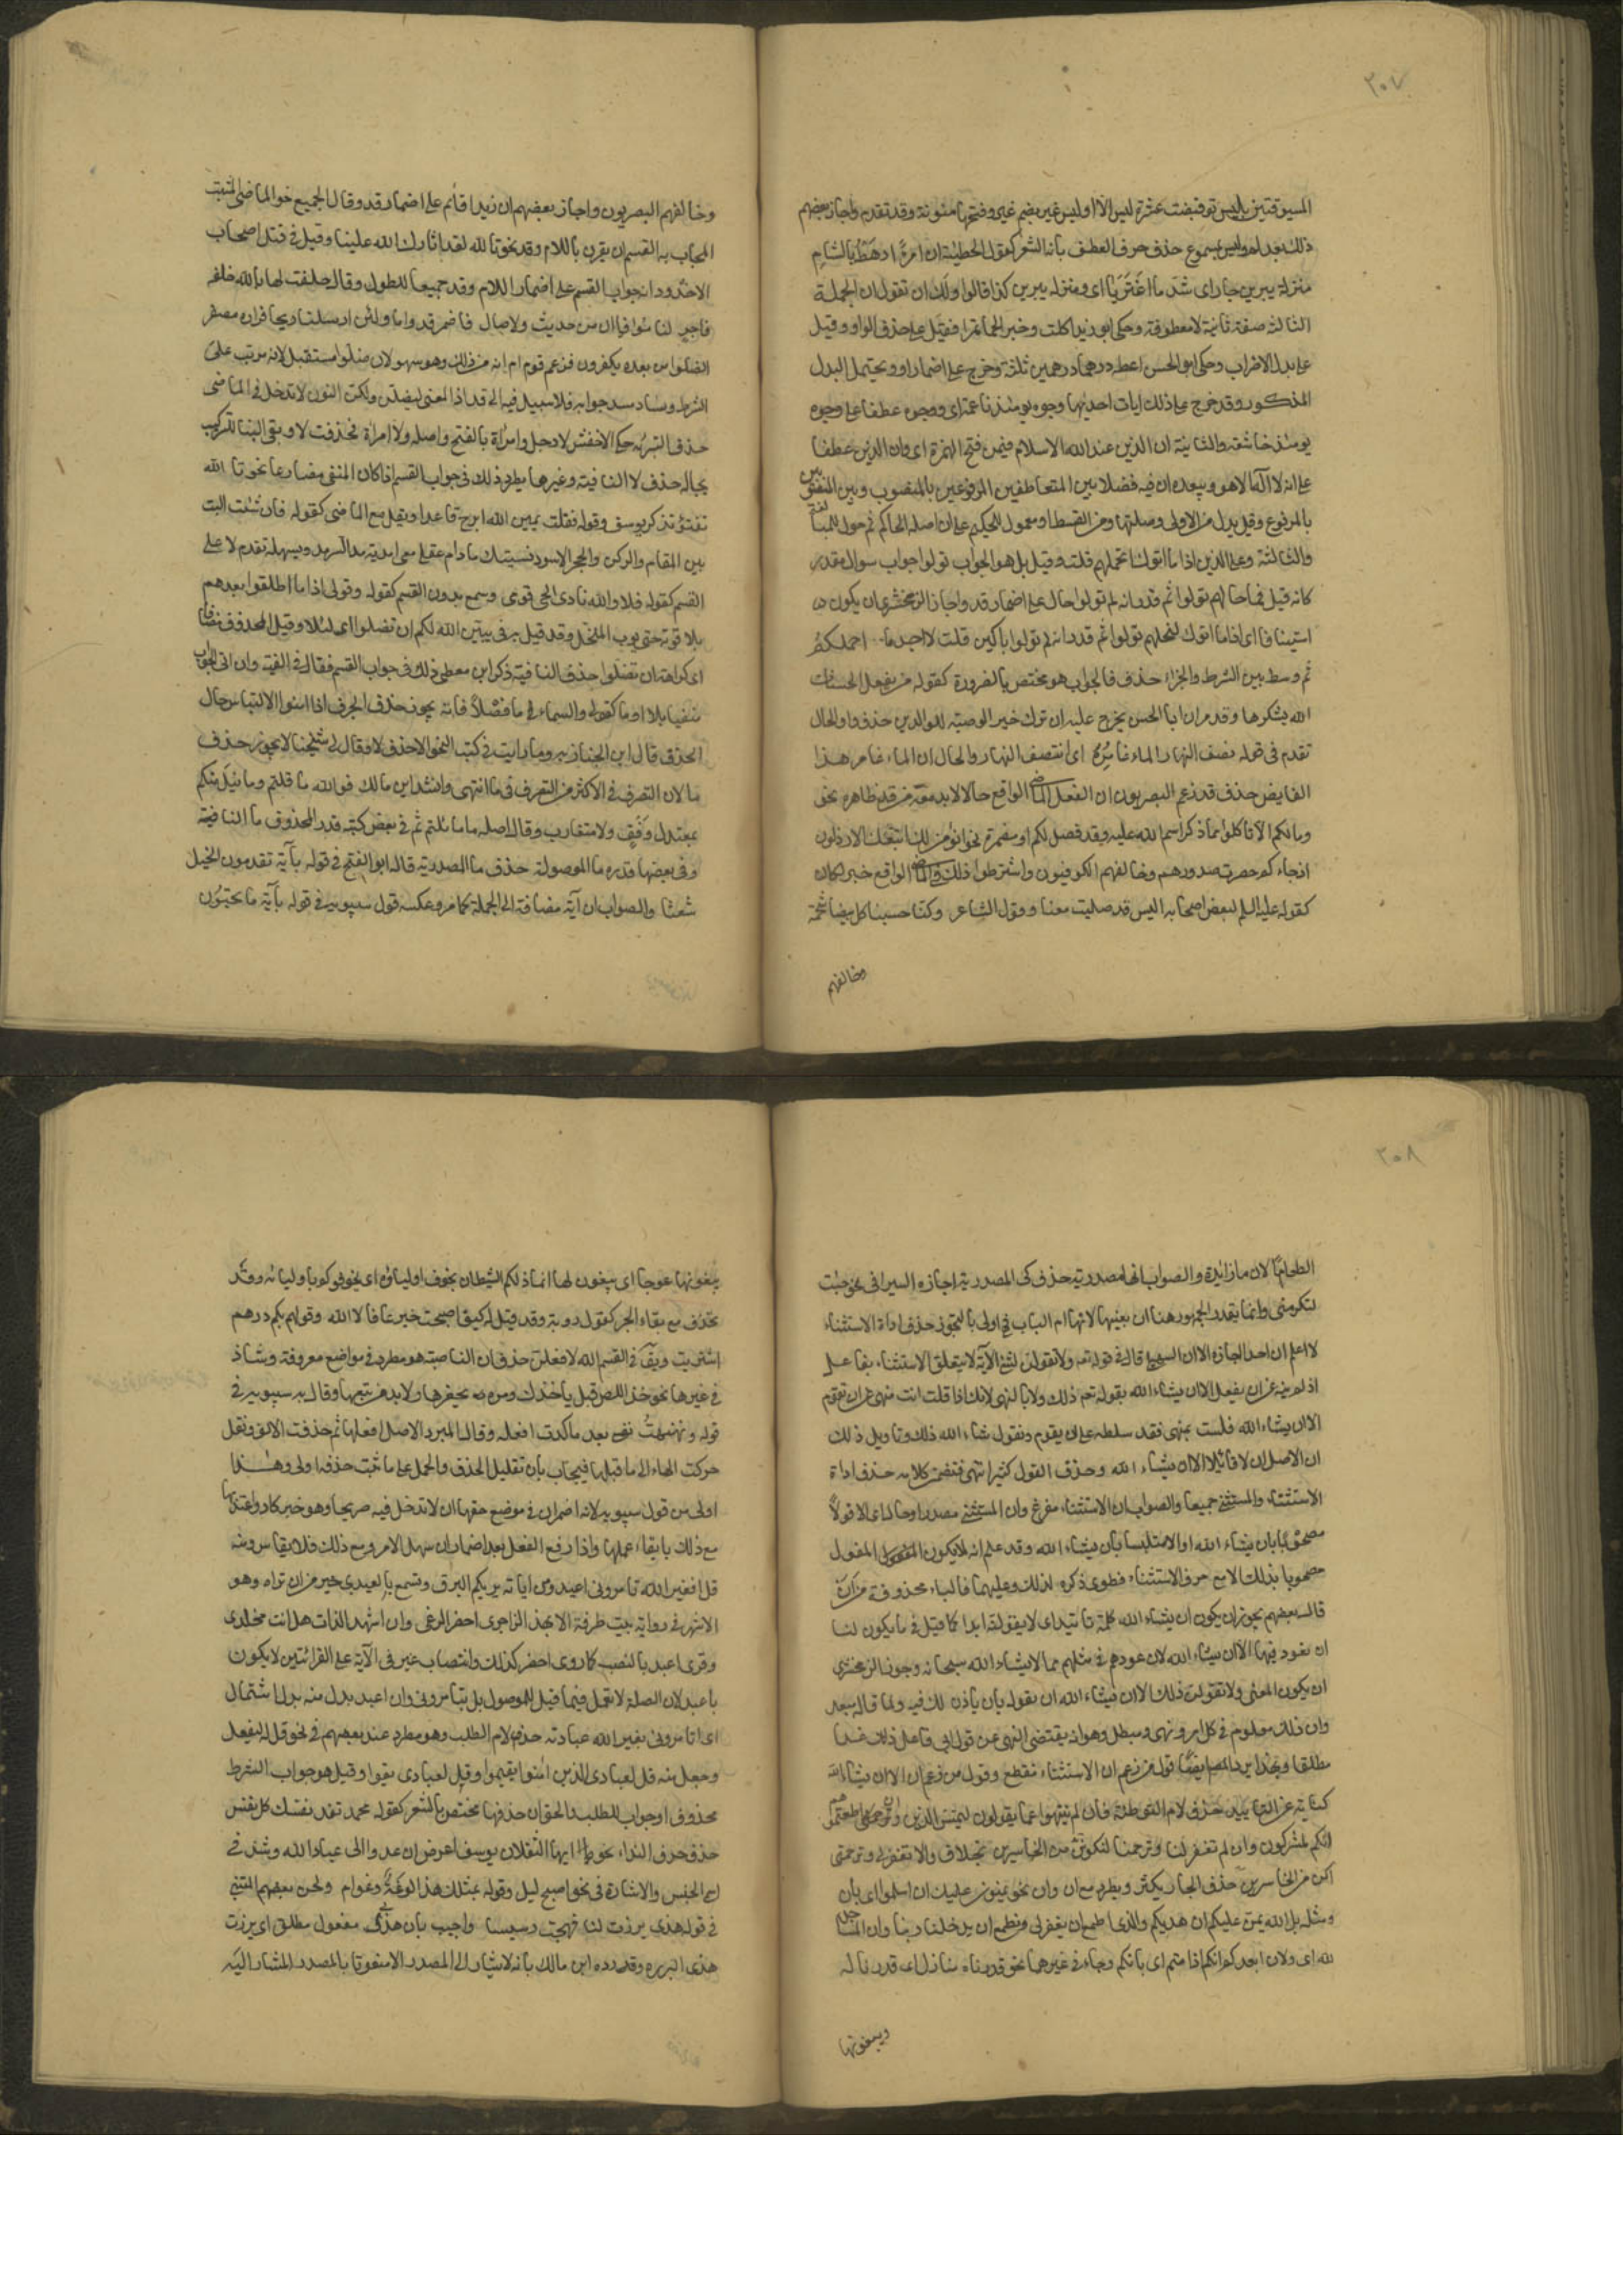 ٢٠٧
المسبوقتين بليس تو قبضت عشرة ليس الا او ليس غير بضم غير وفتحها منونة وقد تقدم واجاز بعضهم
ذلك بعد لم وليس بمسموع حذف حرف العطف بأنه الشعر كقول الحطيئة ان امرءا رهطه بالشام
منزله بيبرين جار اى شد ما اغتربا اى ومنزله بيبرين كذا قالوا ولك ان تقول ان الجملة
الثالثة صفة ثانية لا معطوفة وحكى ابو زيد اكلت وخبزا لحما تمرا فقيل على حذف الواو وقيل
على بدل الاضراب وحكى ابو الحسن اعطه درهما درهمين ثلثة وخرج على اضمار او ويحتمل البدل
المذكور وقد خرج على ذلك ايات احديها وجوه يومئذ ناعمة اى ووجوه عطفا على وجوه
يومئذ خاشعة والثانية ان الدين عند الله الاسلام فيمن فتح الهمزة اى وان الدين عطفا
على انه لا اله الا هو ويبعده ان فيه فضلا بين المتعاطفين المرفوعين بالمنصوب وبين المنصوبين
بالمرفوع وقيل بدل من الاولى وصلتها ومن القسط او معمول للحكيم على ان اصله الحاكم ثم حول للمبالغة
والثالثة وعلى الذين اذا ما اتوك لتحملهم قلت وقيل بل هو الجواب تولوا جواب سوال مقدر
كانه قيل فما حالهم تولوا ثم قدر انه لم تولوا حال على اضمار قد واجاز الزمخشرى ان يكون
استينافا اى اذا ما اتوك لتحملهم تولوا ثم قدر انه لم تولوا باكين قلت لا اجد ما احملكم
ثم وسط بين الشرط والجزاء حذف فا الجواب هو مختص بالضرورة كقوله من يفعل الحسنات
الله يشكرها وقد مر ان ابا الحسن يخرج عليه ان ترك خير الوصية للوالدين حذف واو الحال
تقدم فى قوله نصف النهار الماء غامره اى انتصف النهار والحال ان الماء غامر هذا
الغايص حذف قد زعم البصريون ان الفعل الماضى الواقع حالا لا بد معه من قد ظاهره نحو
وما لكم الا تاكلوا مما ذكر اسم الله عليه وقد فصل لكم او مضمرة نحو انؤمن لك واتبعك الارذلون
او جاءوكم حصرت صدورهم وخالفهم الكوفيون واشترطوا ذلك فى الماضى الواقع خبرا لكان
كقوله عليه السلم لبعض اصحابه اليس قد صليت معنا وقول الشاعر وكنا حسبنا كل بيضاء شحمة
وخالفهم
وخالفهم البصريون واجاز بعضهم ان زيدا قائم على اضمار قد وقال الجميع حق الماضى المثبت
المجاب به القسم ان يقرن باللام وقد نحو تالله لقد اثرك الله علينا وقيل فى قتل اصحاب
الاخدود انه جواب القسم على اضمار اللام وقد جميعا للطول وقال حلفت لها بالله حلفة
فاجر لناموا فما ان من حديث ولا صال فاضمر قد واما ولئن ارسلنا ريحا فراوه مصفرا
لظلوا من بعده يكفرون فزعم قوم انه من ذلك وهو سهو لان ظلوا مستقبل لانه مرتب على
الشرط وساد مسد جوابه فلا سبيل فيه الى قد اذ المعنى ليظلن ولكن النون لا تدخل فى الماضى
حذف لا التبرئة حكى الاخفش لا رجل وامرأة بالفتح واصله ولا امراة فحذفت لا وبقى البناء للتركيب
بحاله حذف لا النافية وغيرها يطرد ذلك فى جواب القسم اذا كان المنفى مضارعا نحو تا الله
تفتؤ تذكر يوسف وقوله فقلت يمين الله ابرح قاعدا ويقل مع الماضى كقوله فان شئت اليت
بين المقام والركن والحجر الاسود نسيتك ما دام عقلى معى امد به امد السرمد ويسهله تقدم لا على
القسم كقوله فلا والله نادى الحى قومى وسمع بدون القسم كقوله وقولى اذا ما اطلقوا بعيرهم
يلاقونه حتى يؤوب المنخل وقد قيل به فى يبين الله لكم ان تضلوا اى لئلا وقيل المحذوف مضاف
اى كراهة ان تضلوا حذف ما النافية ذكر ابن معطى ذلك فى جواب القسم فقال فى الفيته وان اتى الجواب
منفيا بلا او ما كقولى والسماء ما فعلا فانه يجوز حذف الحرف اذا امنوا الالباس حال
الحذف قال ابن الخباز وما رايت فى كتب النحو الا حذف لا وقال لى شيخنا لا يجوز حذف
ما لان التصرف فى لا اكثر من التصرف فى ما انتهى وانشد ابن مالك فوالله ما نلتم وما نيل منكم
بمعتدل وفق ولا متقارب وقال اصله ما ما نلتم ثم فى بعض كتبه قدر المحذوف ما النافية
وفى بعضها قدره ما الموصولة حذف ما المصدرية قاله ابو الفتح فى قوله بآية تقدمون الخيل
شعثا والصواب ان آية مضافة الى الجملة كما مر وعكسه قول سيبويه فى قوله بآية ما تحبون
٢٠٨
الطعاما لان ما زايدة والصواب انها مصدرية حذف كى المصدرية اجازه السيرافى نحو جئت
لتكرمنى وانما يقدر الجمهور هنا ان بعينها لانها ام الباب فهى اولى بالتجوز حذف اداة الاستثناء
لا اعلم ان احدا اجازه الا ان السهيلى قال فى قوله تعه ولا تقولن لشئ الآية لا يتعلق الاستثناء بفاعل
اذ لم ينه عن ان يفعل الا ان يشاء الله بقوله تعه ذلك ولا بالنهى لانك اذا قلت انت منهى عن ان تقوم
الا ان يشاء الله فلست بمنهى فقد سلطه على ان يقوم ويقول شاء الله ذلك وتاويل ذلك
ان الاصل الا قائلا الا ان يشاء الله وحذف القول كثير انتهى فتضمن كلامه حذف اداة
الاستثناء والمستثنى جميعا والصواب ان الاستثناء مفرغ وان المستثنى مصدر او حال اى الا قولا
مصحوبا بان يشاء الله او الا متلبسا بأن يشاء الله وقد علم انه لا يكون القول
مصحوبا بذلك الا مع حرف الاستثناء فطوى ذكره لذلك وعليهما فالباء محذوفة من ان
قال بعضهم يجوز ان يكون ان يشاء الله كلمة تأبيد اى لا تقولنه ابدا كما قيل فى ما يكون لنا
ان نعود فيها الا ان يشاء الله لان عودهم فى مثلهم مما لا يشاء الله سبحانه وجوز الزمخشرى
ان يكون المعنى ولا تقولن ذلك الا ان يشاء الله ان تقوله بأن يأذن لك فيه ولما قاله بعد
وان ذلك معلوم فى كل امر ونهى ومبطل وهو انه يقتضى النهى عن قول انى فاعل ذلك غدا
مطلقا وبهذا يرد ايضا قول من زعم ان الاستثناء منقطع وقول من زعم ان الا ان يشاء الله
كناية عن التأبيد حذف لام التوطئة فان لم ينتهوا عما يقولون ليمسن الذين وان اطعتموهم
انكم لمشركون وان لم تغفر لنا وترحمنا لنكونن من الخاسرين بخلاف والا تغفر لى وترحمنى
اكن من الخاسرين حذف الجار يكثر ويطرد مع ان وان نحو يمنون عليك ان اسلموا اى بأن
ومثله بل الله يمن عليكم ان هديكم والذى اطمع ان يغفر لى ونطمع ان يدخلنا ربنا وان المساجد
لله اى ولان ايعدكم انكم اذا متم اى بأنكم وجاء فى غيرهما نحو قدرناه منازل اى قدرنا له
ويبغونها
يبغونها عوجا اى يبغون لها انما ذلكم الشيطان يخوف اولياؤه اى يخوفوكم باوليائه وقد
يحذف مع بقاء الجر كقول رؤبة وقد قيل له كيف اصبحت خير عافاك الله وقولهم بكم درهم
اشتريت ويق فى القسم الله لافعلن حذف ان الناصبة هو مطرد فى مواضع معروفة وشاذ
فى غيرها نحو خذ اللص قبل يأخذك ومره يحفرها ولا بد من تتبعها وقال به سيبويه فى
قوله ونهنهت نفسى بعد ما كدت افعله وقال المبرد الاصل افعلها ثم حذفت الالف ونقل
حركت الهاء الى ما قبلها فيجاب بأن تقليل الحذف والحمل على ما ثبت حذفه اولى وهذا
اولى من قول سيبويه لانه اضمر ان فى موضع حقها ان لا تدخل فيه صريحا وهو خبر كاد واعتد بها
مع ذلك بابقاء عملها واذا رفع الفعل بعد اضمار ان سهل الامر ومع ذلك فلا يقاس ومنه
قل افغير الله تأمرونى اعبد ومن اياته يريكم البرق وتسمع بالمعيدى خير من ان تراه وهو
الاشهر فى رواية بيت طرفة الا يهذا الزاجرى احضر الوغى وان اشهد اللذات هل انت مخلدى
وقرى اعبد بالنصب كما روى احضر كذلك وانتصاب غير فى الآية على القرائتين لا يكون
باعبد لان الصلة لا تعمل فيما قبل الموصول بل بتأمرونى وان اعبد بدل منه بدل اشتمال
اى اتأمرونى بغير الله عبادته حذف لام الطلب وهو مطرد عند بعضهم فى نحو قل له يفعل
وجعل منه قل لعبادى الذين امنوا يقيموا وقل لعبادى يقولوا وقيل هو جواب لشرط
محذوف او جواب للطلب والحق ان حذفها مختص بالشعر كقوله محمد تفد نفسك كل نفس
حذف حرف النداء نحو ايها الثقلان يوسف اعرض ان ادوا الى عباد الله وشذ فى
اسم الجنس والاشارة فى نحو اصبح ليل وقوله بمثلك هذا لوعة وغرام ولحن بعضهم المتنبى
فى قوله هذى برزت لنا فهجت رسيسا واجيب بأن هذى مفعول مطلق اى برزت
هذى البرزه وقد رده ابن مالك بأنه لا يشار الى المصدر الا منعوتا بالمصدر المشار اليه